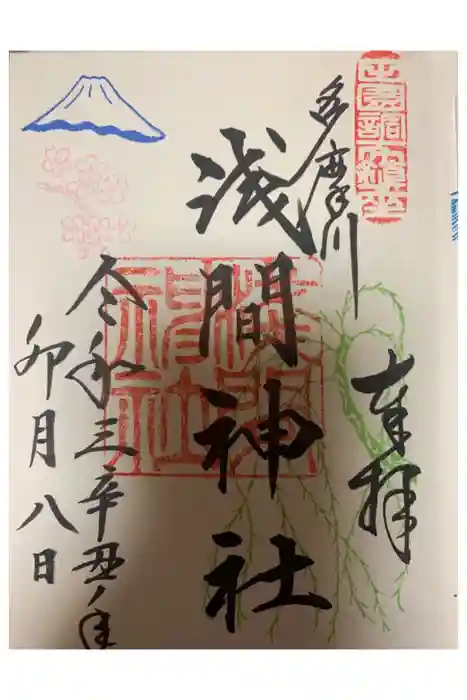 奉拝
多摩川
浅間神社
令和三辛丑年
卯月八日